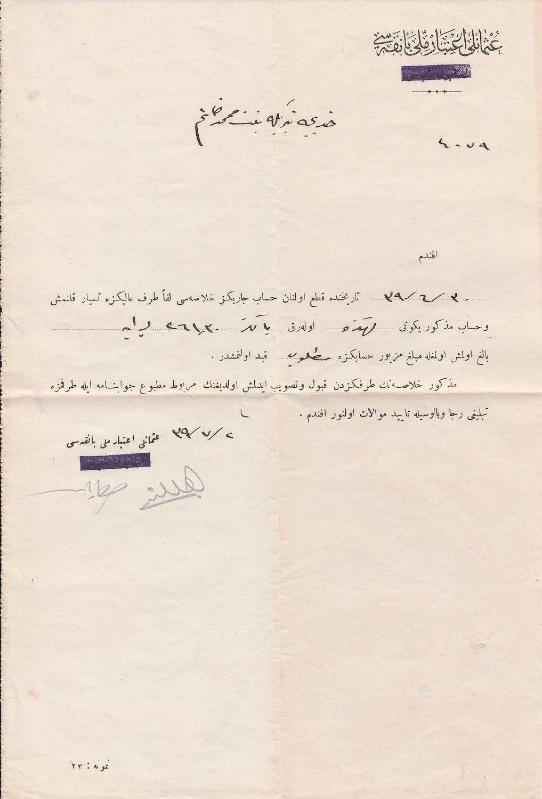 عثمانلی اعتبار ملی بانقه‌سی
خدیجه بنت محمد خانم
٤٠٧٩
افندم
٣٩/٦/٣٠ تاریخنده قطع اولنان حساب جاریكز خلاصه‌سی لفاً طرف عالیكزه تسیار قلنمش
و حساب مذكور یكونی لهكزه اوله‌رق ٢٦١,٣٠ لیرایه
بالغ اولمش اولمغله مبلغ مزبور حسابكزه مطلوب قید اولنمشدر .
مذكور خلاصه‌نك طرفكزدن قبول وتصویب ایدلمش اولدیغنك مربوط مطبوع جوابنامه ایله طرفمزه
تبلیغی رجا وبالوسیله تأیید موالات اولنور افندم .
٣٩/٧/٢
عثمانلی اعتبار ملی بانقه‌سی
نمونه : ٢٣